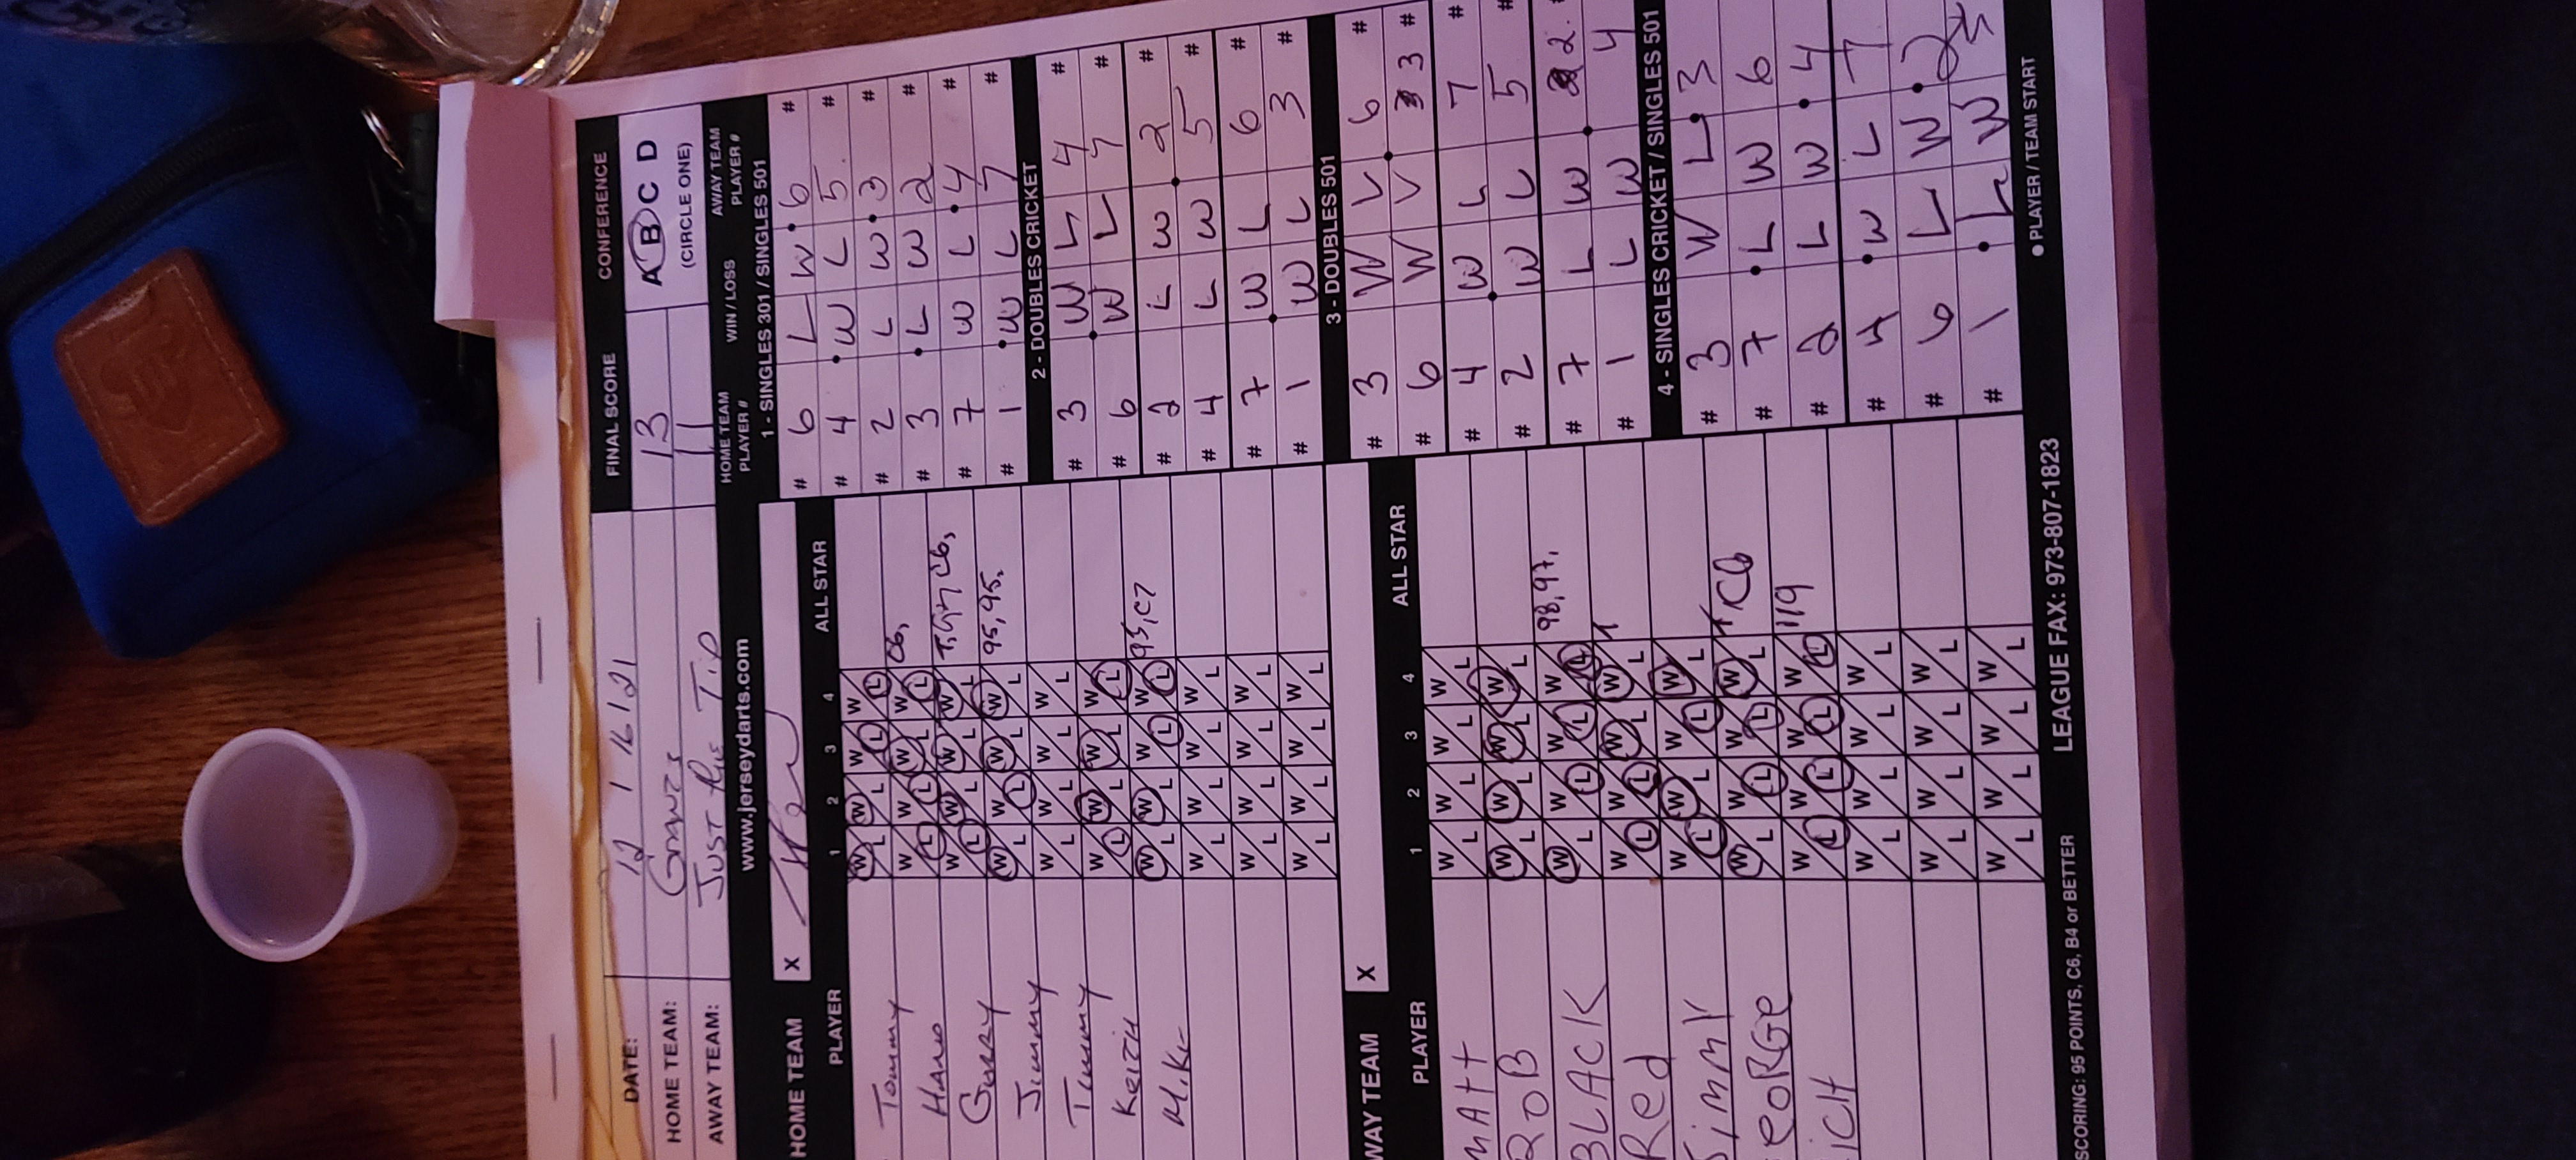 DATE: 12 / 16 / 21
FINAL SCORE
CONFERENCE
HOME TEAM:
13
A B C D
AWAY TEAM: JUST the TIP
11
(CIRCLE ONE)
www.jerseydarts.com
HOME TEAM PLAYER #
WIN / LOSS
AWAY TEAM PLAYER #
HOME TEAM X
PLAYER 1 2 3 4 ALL STAR
Tommy W L W L W L W L C6,
W L W L W L W L
W L W L W L W L 95, 95.
Jimmy W L W L W L W L
Timmy W L W L W L W L
Keith W L W L W L W L 95, C7
Mike W L W L W L W L
W L W L W L W L
W L W L W L W L
W L W L W L W L
1 - SINGLES 301 / SINGLES 501
# 6 L W 6 #
# 4 W L 5 #
# 2 L W 3 #
# 3 L W 2 #
# 7 W L 4 #
# 1 W L 7 #
2 - DOUBLES CRICKET
# 3 W L 4 #
# 6 W L 7 #
# 2 L W 2 #
# 4 L W 5 #
# 7 W L 6 #
# 1 W L 3 #
WAY TEAM X
PLAYER 1 2 3 4 ALL STAR
MATT W L W L W L W L
ROB W L W L W L W L
BLACK W L W L W L W L 98, 97.
Red W L W L W L W L
JimmY W L W L W L W L
eORGe W L W L W L W L C6
iCH W L W L W L W L 119
W L W L W L W L
W L W L W L W L
W L W L W L W L
3 - DOUBLES 501
# 3 W L 6 #
# 6 W L 3 #
# 4 W L 7 #
# 2 W L 5 #
# 7 L W 2.
# 1 L W 4
4 - SINGLES CRICKET / SINGLES 501
# 3 W L 3
# 7 L W 6
# 2 L W 4
# 4 W L 7
# 6 L W 2
# 1 L W
SCORING: 95 POINTS, C6, B4 or BETTER
LEAGUE FAX: 973-807-1823
● PLAYER / TEAM START